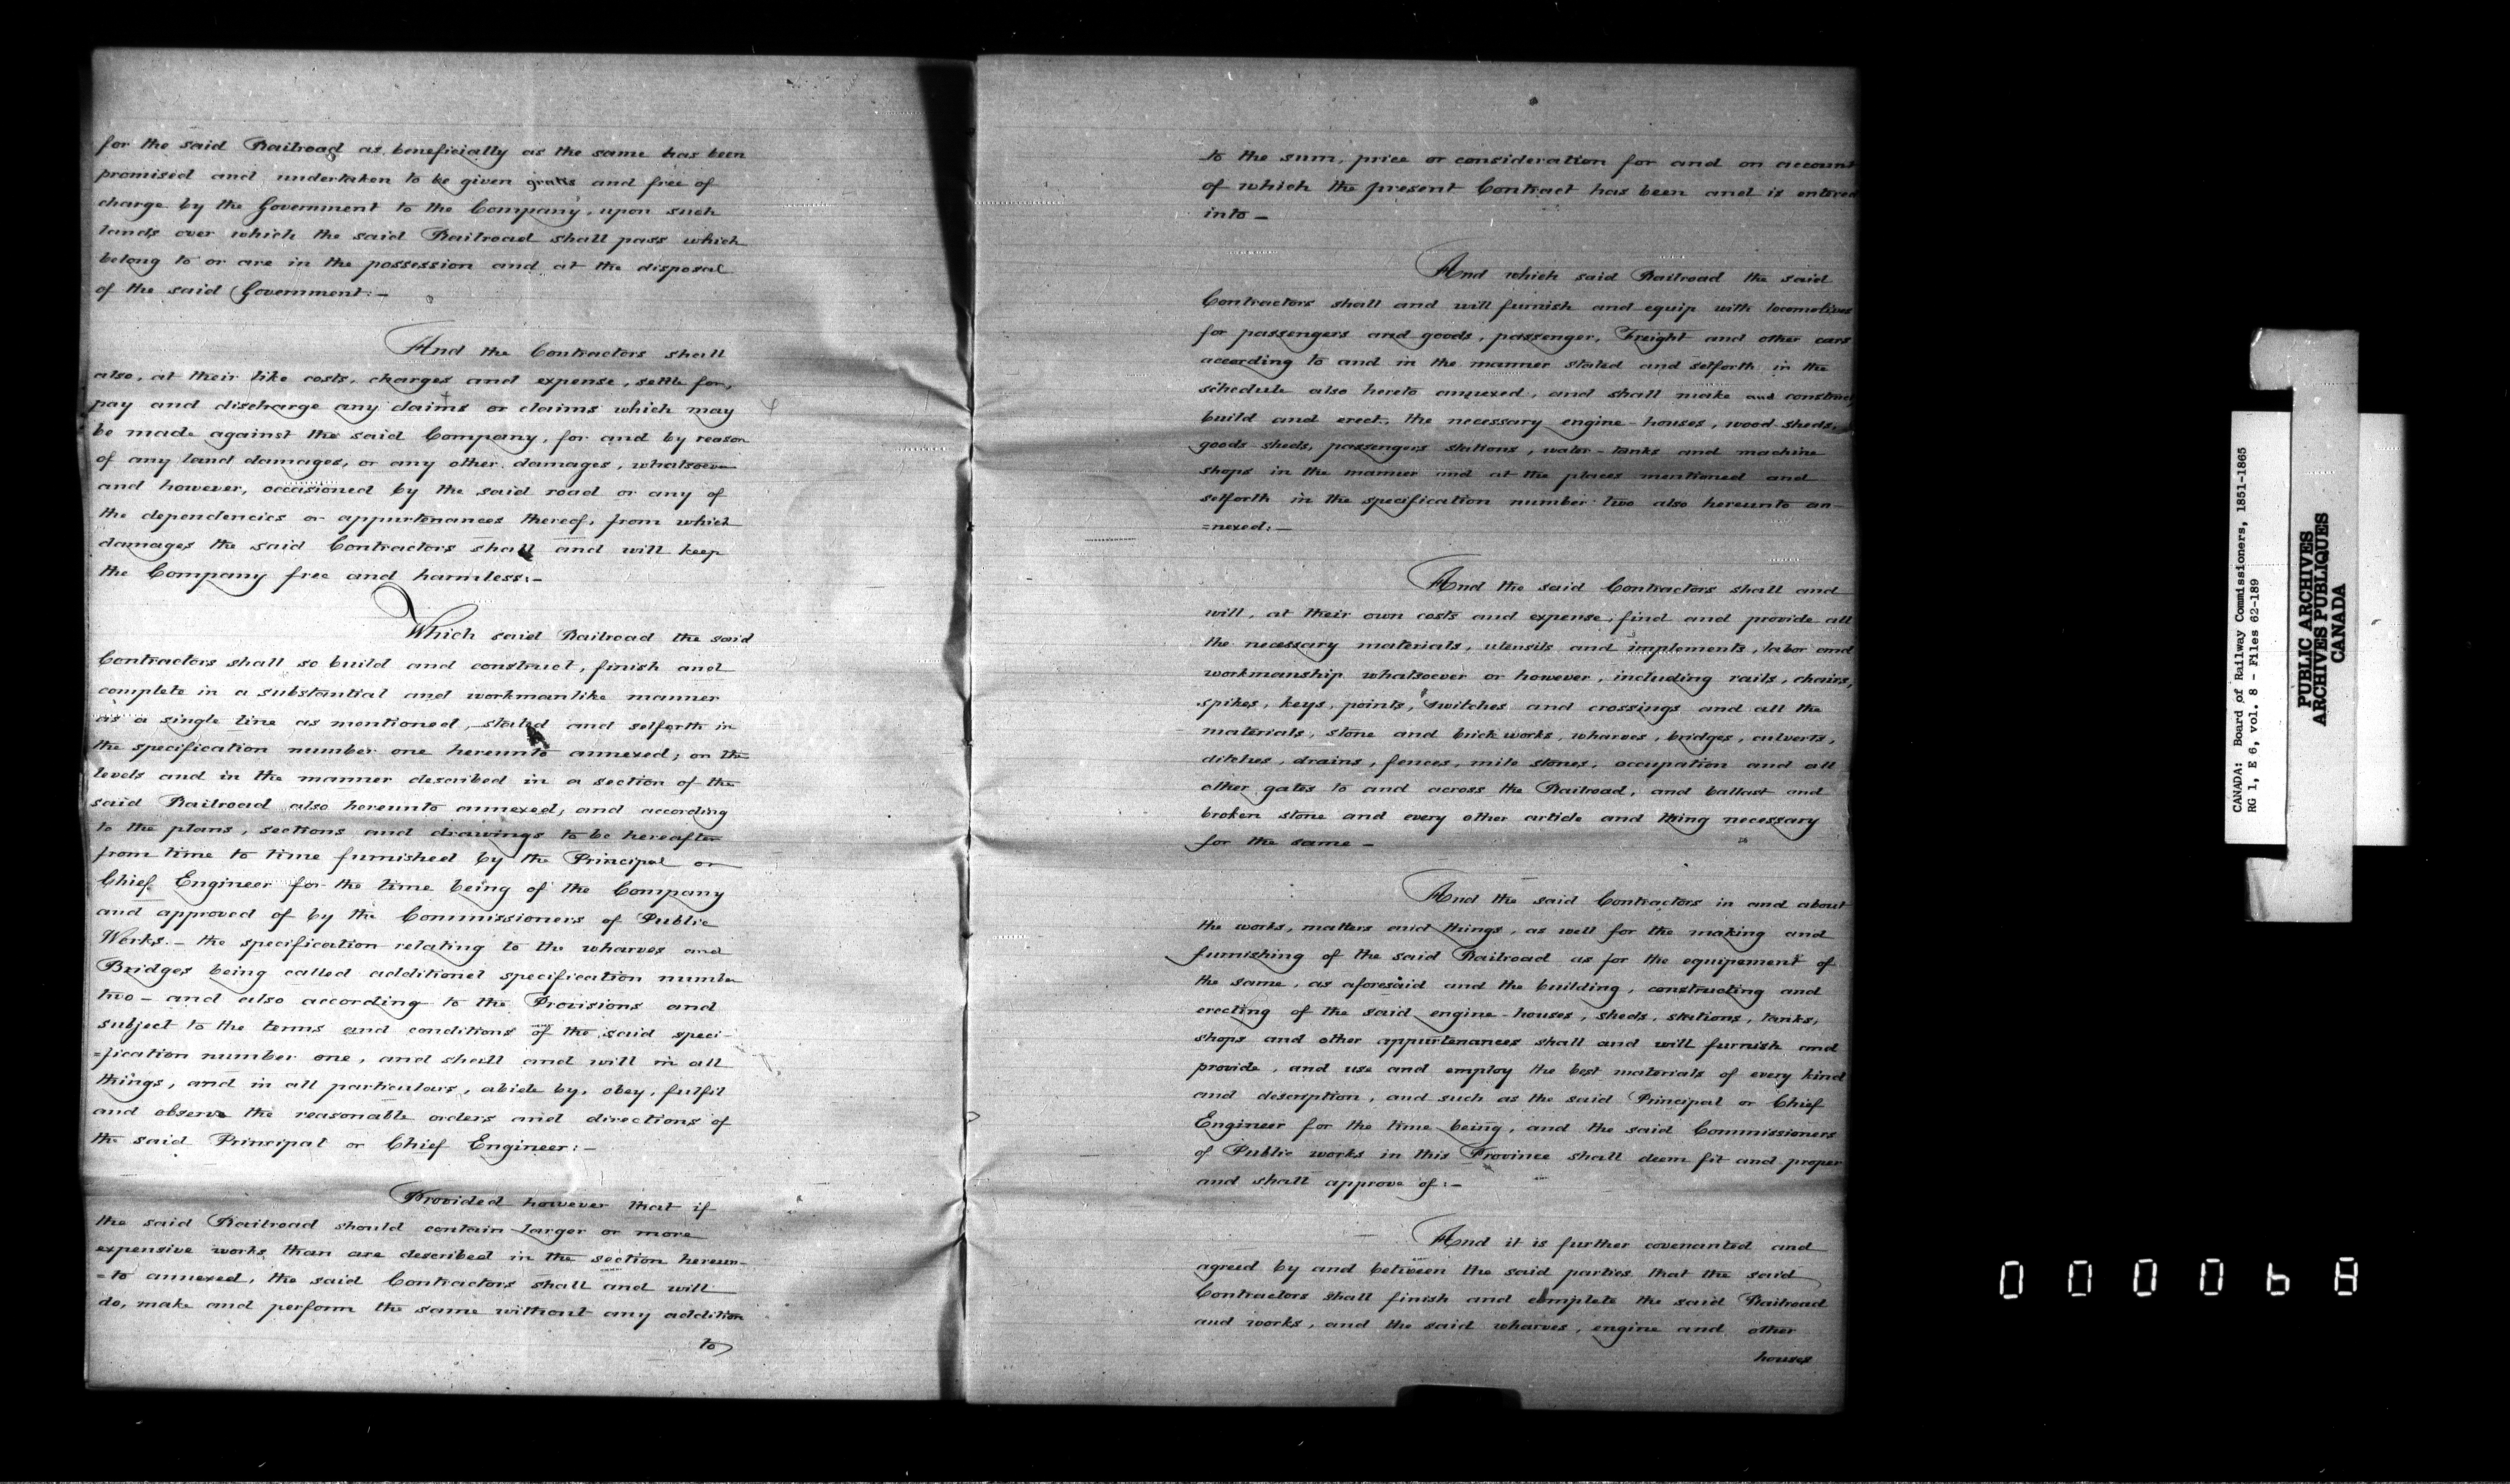 for the said Railroad as beneficially as the same has been
promised and undertaken to be given gratis and free of
charge by the Government to the Company, upon such
lands over which the said Railroad shall pass which
belong to or are in the possession and at the disposal
of the said Government:—
And the Contractors shall
also, at their like costs, charges and expense, settle for,
pay and discharge any claims or claims which may
be made against the said Company, for and by reason
of any land damages, or any other damages, whatsoever
and however, occasioned by the said road or any of
the dependencies or appurtenances thereof, from which
damages the said Contractors shall and will keep
the Company free and harmless:—
Which said Railroad the said
Contractors shall so build and construct, finish and
complete in a substantial and workmanlike manner
as a single line as mentioned, stated and setforth in
the specification number one hereunto annexed; on the
levels and in the manner described in a section of the
said Railroad also hereunto annexed; and according
to the plans, sections and drawings to be hereafter
from time to time furnished by the Principal or
Chief Engineer for the time being of the Company
and approved of by the Commissioners of Public
Works.— the specification relating to the wharves and
Bridges being called additional specification number
two— and also according to the Provisions and
subject to the terms and conditions of the said speci-
=fication number one, and shall and will in all
things, and in all particulars, abide by, obey, fulfil
and observe the reasonable orders and directions of
the said Principal or Chief Engineer:—
Provided however that if
the said Railroad should contain larger or more
expensive works than are described in the section hereun-
=to annexed, the said Contractors shall and will
do, make and perform the same without any addition
to
to the sum, price or consideration for and on account
of which the present Contract has been and is entered
into—
And which said Railroad the said
Contractors shall and will furnish and equip with locomotives
for passengers and goods, passenger, Freight and other cars
according to and in the manner stated and setforth in the
schedule also hereto annexed, and shall make and construct,
build and erect, the necessary engine-houses, wood sheds,
goods sheds, passengers stations, water-tanks and machine
shops in the manner and at the places mentioned and
setforth in the specification number two also hereunto an-
=nexed:—
And the said Contractors shall and
will, at their own costs and expense, find and provide all
the necessary materials, utensils and implements, labor and
workmanship whatsoever or however, including rails, chairs,
spikes, keys, points, switches and crossings and all the
materials, stone and brick works, wharves, bridges, culverts,
ditches, drains, fences, mile stones, occupation and all
other gates to and across the Railroad, and ballast and
broken stone and every other article and thing necessary
for the same—
And the said Contractors in and about
the works, matters and things, as well for the making and
furnishing of the said Railroad as for the equipement of
the same, as aforesaid and the building, constructing and
erecting of the said engine-houses, sheds, stations, tanks,
shops and other appurtenances shall and will furnish and
provide, and use and employ the best materials of every kind
and description, and such as the said Principal or Chief
Engineer for the time being, and the said Commissioners
of Public works in this Province shall deem fit and proper
and shall approve of:—
And it is further covenanted and
agreed by and between the said parties that the said
Contractors shall finish and complete the said Railroad
and works, and the said wharves, engine and other
houses
CANADA: Board of Railway Commissioners, 1851-1865
RG 1, E 6, vol. 8 - Files 62-189
PUBLIC ARCHIVES
ARCHIVES PUBLIQUES
CANADA